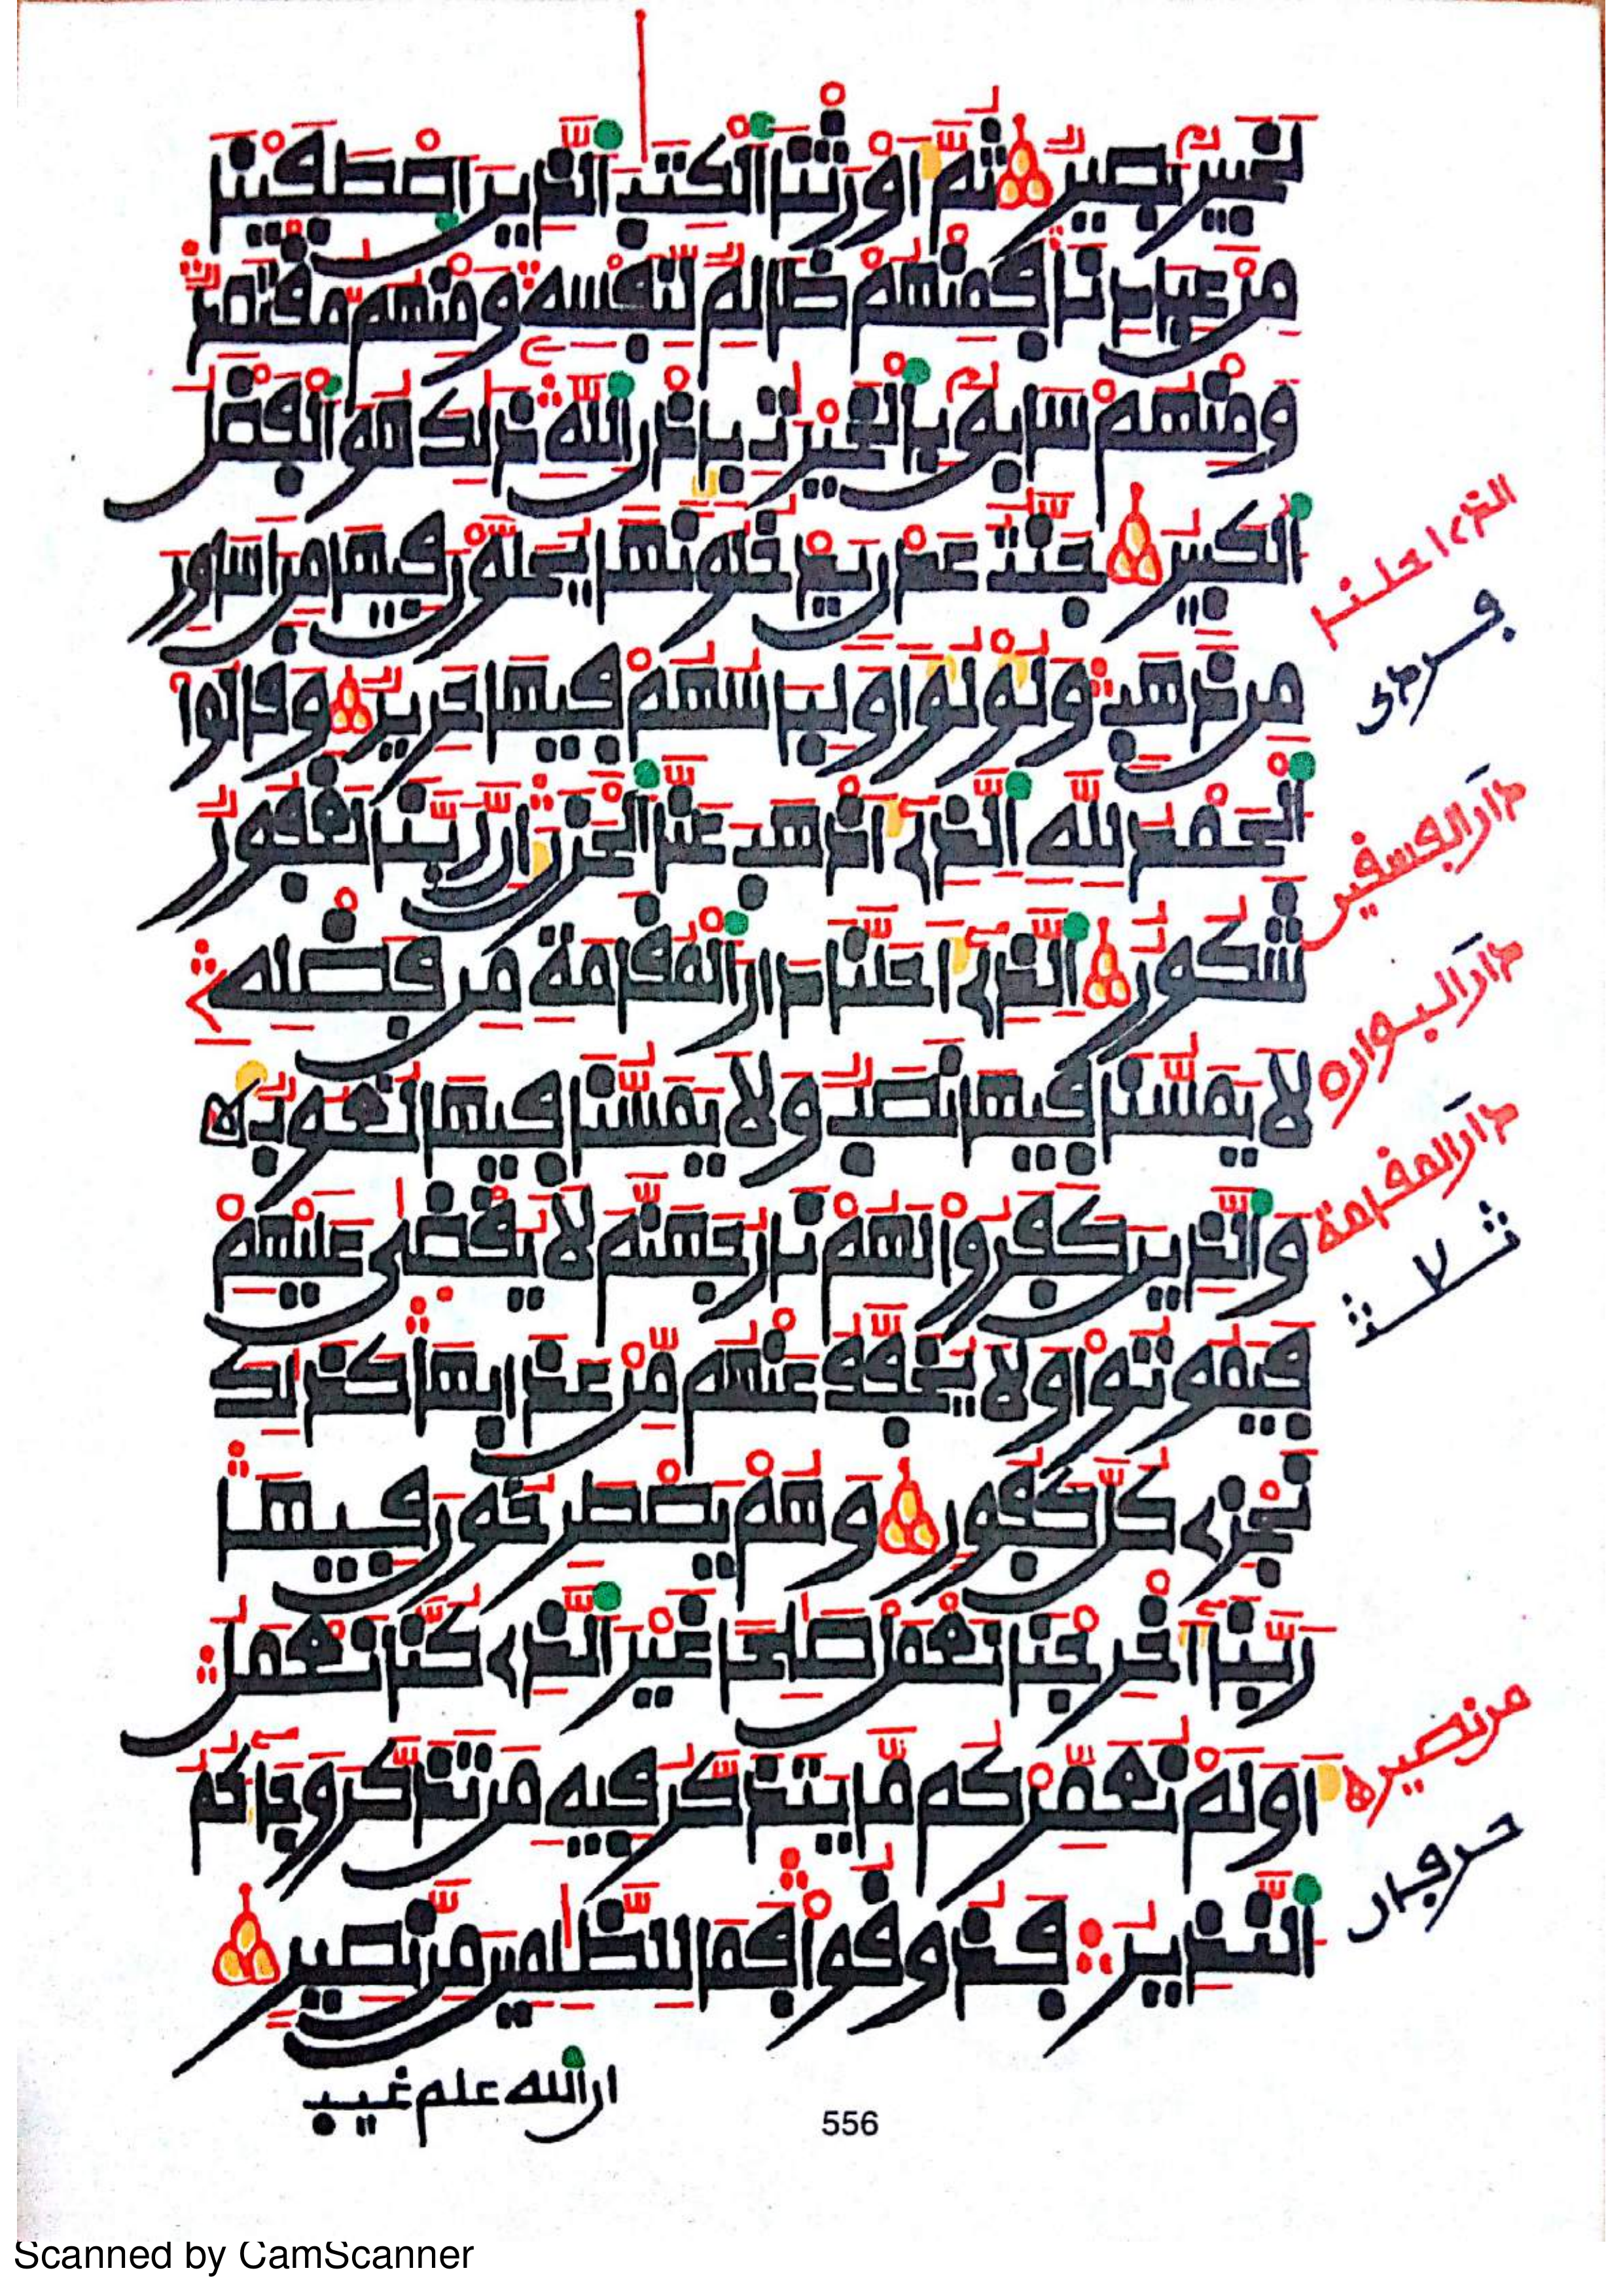 لخبير بصير ثم اورثنا الكتب الذين اصطفينا
من عبادنا فمنهم ظالم لنفسه ومنهم مقتصد
ومنهم سابق بالخيرت باذن الله ذلك هو الفضل
الكبير جنت عدن يدخلونها يحلون فيها من اساور
من ذهب ولؤلؤا ولباسهم فيها حرير وقالوا
الحمد لله الذي اذهب عنا الحزن ان ربنا لغفور
شكور الذي احلنا دار المقامة من فضله
لا يمسنا فيها نصب ولا يمسنا فيها لغوب ه
والذين كفروا لهم نار جهنم لا يقضى عليهم
فيموتوا ولا يخفف عنهم من عذابها كذلك
نجزي كل كفور وهم يصطرخون فيها
ربنا اخرجنا نعمل صلحا غير الذي كنا نعمل
اولم نعمركم ما يتذكر فيه من تذكر وجاكم
النذير فذوقوا فما للظلمين من نصير
الذي احلنا
دار الفسقين
دار البوار ه
دار المقامة
من نصير ه
ان الله علم غيب
556
Scanned by CamScanner